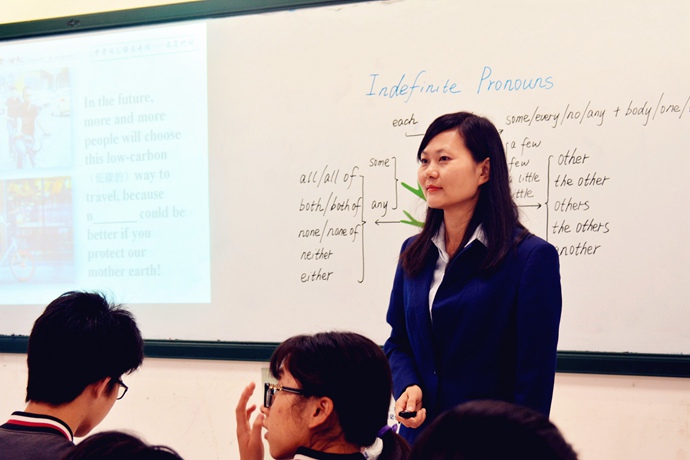 In the future,
more and more
people will choose
this low-carbon
(低碳的) way to
travel, because
n______ could be
better if you
protect our
mother earth!
Indefinite Pronouns
each
some/every/no/any + body/one/
some
any
all/all of
both/both of
none/none of
neither
either
a few
few
a little
little
other
the other
others
the others
another